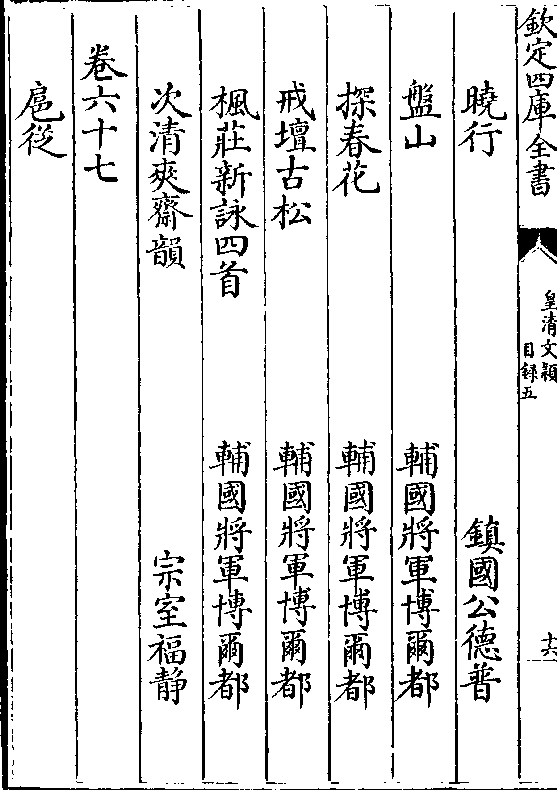 欽定四庫全書
皇清文穎
目錄五
十六
曉行 鎮國公德普
盤山 輔國將軍博爾都
探春花 輔國將軍博爾都
戒壇古松 輔國將軍博爾都
楓莊新詠四首 輔國將軍博爾都
次清爽齋韻 宗室福静
卷六十七
扈從